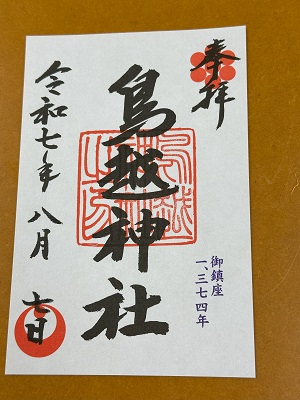 奉拝
鳥越神社
御鎮座
一、三七四年
令和七年 八月 七日